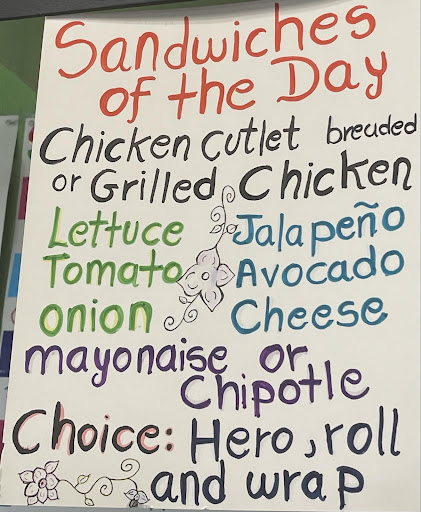 Sandwiches
of the Day
Chicken cutlet breaded
or Grilled Chicken
Lettuce Jalapeño
Tomato Avocado
onion Cheese
mayonaise or
Chipotle
Choice: Hero, roll
and wrap